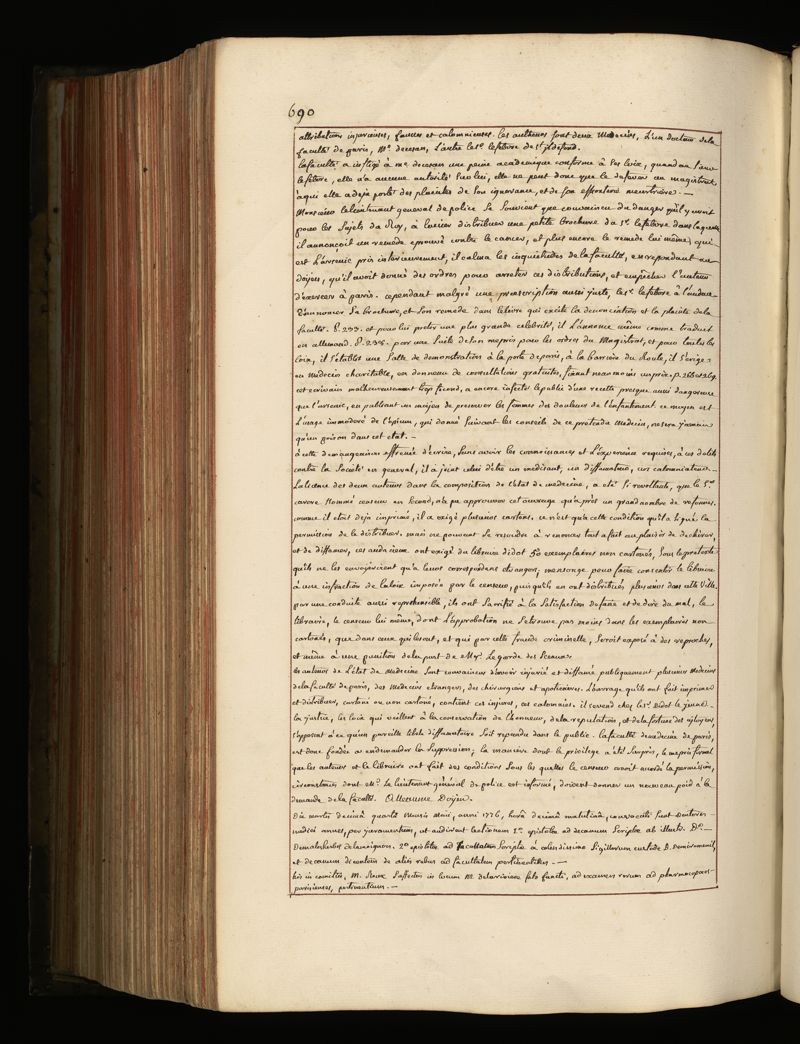 690
attributions injurieuses, fausses et calomnieuses. les autheurs sont deux Medecins. L'un docteur de la
faculté de paris, Mr. de l'autre le Sr. lefebvre de St. ildefond.
la faculté a infligé à mr. une peine academique conforme à ses loix, quand au Sieur
lefebvre, elle n'a aucune autorité sur lui, elle ne peut donc que le deferer au magistrat,
à qui elle a deja porté des plaintes de son ignorance, et de son effronterie meurtriere. —
Monsieur le lieutenant general de police se souvient que convaincu du danger qu'il y avoit
pour les Sujets du Roy, à laisser distribuer une petite brochure du Sr. lefebvre dans laquelle
il annonçoit un remede eprouvé contre le cancer, et plus encore le remede lui même, qui
est L'arsenic pris interieurement, il calma les inquietudes de la faculté, en repondant au
doyen, qu'il avoit donné des ordres pour arreter ces distributions, et empêcher l'auteur
d'exercer à paris. cependant malgré une proscription aussi juste, le Sr. lefebvre à l'audace
d'annoncer sa brochure, et son remede dans le livre qui excite la denonciation et la plainte de la
faculté. P. 233. et pour lui preter une plus grande celebrité, il L'annonce même comme traduit
en allemand. P. 238. par une suite de son mepris pour les ordres du Magistrat, et pour toutes les
loix, il s'établit une Salle de demonstration à la porte de paris, à la barriere du Roule, il s'erige
en Medecin charitable, en donneur de consultations gratuites, p. 268 et 269.
cet ecrivain malheureusement trop fecond, a encore infecté le public d'une recette presque aussi dangereuse
que l'arsenic, en publiant un moyen de preserver les femmes des douleurs de l'enfantement. ce moyen est
L'usage immoderé de l'opium, qui donné suivant les conseils de ce pretendu Medecin, ne sera jamais
qu'un poison dans cet etat. —
à cette demangeaison effrenée d'écrire, sans avoir les connoissances et L'experience requises, à ces delits
contre la Societé en general, il a joint celui d'être un medisant, un diffamateur, un calomniateur. —
La licence des deux auteurs dans la composition de l'état de medecine, a eté si revoltante, que le Sr.
nommé censeur en Second, n'a pu approuver cet ouvrage qu'après un grand nombre de reformes.
comme il etoit deja imprimé, il a exigé plusieurs cartons. ce n'est qu'à cette condition qu'il a signé la
permission de le distribuer. mais ne pouvant se resoudre à renoncer tout a fait au plaisir de dechirer,
et de diffamer, ces audacieux ont exigé du libraire didot 50 exemplaires non cartonés, sous le pretexte
qu'ils ne les envoyeroient qu'à leurs correspondans etrangers; mensonge pour faire consentir le libraire
à une infraction de la loix imposée par le censeur, puisqu'ils en ont distribués plusieurs dans cette Ville.
par une conduite aussi reprehensible, ils ont sacrifié à la satisfaction de faire et de dire du mal, le
libraire, le censeur lui même, dont L'approbation ne se trouve pas moins dans les exemplaires non
cartonés, que dans ceux qui le sont, et qui par cette fraude criminelle, seroit exposé à des reproches,
et même à une punition de la part de Mgr. Le garde des Sceaux.
les auteurs de L'état de Medecine sont convaincus d'avoir injurié et diffamé publiquement plusieurs Medecins
de la faculté de paris, des Medecins etrangers, des chirurgiens et apothicaires. L'ouvrage qu'ils ont fait imprimer
et distribuer, cartoné ou non cartoné, contient ces injures, ces calomnies. il se vend chez le Sr. Didot le jeune. —
la justice, les loix qui veillent à la conservation de l'honneur, de la reputation, et de la fortune des citoyens
s'opposent à ce qu'un pareil libele diffamatoire soit repandu dans le public. la faculté de medecine de paris,
est donc fondée a en demander la suppression; la maniere dont le privilege a été surpris, le mepris formel
que les auteurs et le libraire ont fait des conditions sous les quelles le censeur avoit accordé la permission,
circonstances dont Mr. Le lieutenant général de police est informé, doivent donner un nouveau poid à la
demande de la faculté. Alleaume Doyen.
Die martis decimâ quartâ Mensis Maii, anni 1776, horâ decimâ matutinâ, convocati sunt Doctores
omnes, per juramentum, ut audirent lectionem 1o. epistolæ ad decanum Scriptæ ab illustr. Do. —
Demalesherbes delamoignon. 2o. epistolæ ad facultatem Scriptæ à nobilissimo Sigillorum custode D. Demiromenil,
et decanum de aliis rebus ad facultatem pertinentibus. —
his in comitiis, M. Roux suffectus in locum M. Delariviere fato functi, ad examen rerum ad pharmacopæos
parisienses, pertinentium. —